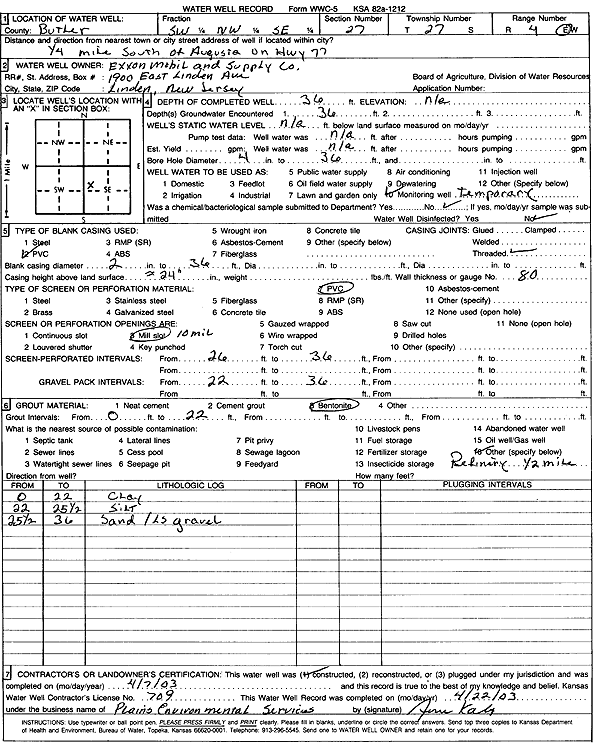 WATER WELL RECORD Form WWC-5 KSA 82a-1212
1 LOCATION OF WATER WELL: Fraction Section Number Township Number Range Number
County: Butler SW ¼ NW ¼ SE ¼ 27 T 27 S R 4 E/W
Distance and direction from nearest town or city street address of well if located within city?
1/4 mile South of Augusta on Hwy 77
2 WATER WELL OWNER: Exxon mobil and Supply Co.
RR#, St. Address, Box # : 1900 East Linden Ave Board of Agriculture, Division of Water Resources
City, State, ZIP Code : Linden, New Jersey Application Number:
3 LOCATE WELL'S LOCATION WITH AN "X" IN SECTION BOX:
N
NW NE
W E
SW X SE
S
1 Mile
4 DEPTH OF COMPLETED WELL 36 ft. ELEVATION: n/a
Depth(s) Groundwater Encountered 1. 36 ft. 2. ft. 3. ft.
WELL'S STATIC WATER LEVEL n/a ft. below land surface measured on mo/day/yr
Pump test data: Well water was n/a ft. after hours pumping gpm
Est. Yield gpm: Well water was n/a ft. after hours pumping gpm
Bore Hole Diameter 4 in. to 36 ft., and in. to ft.
WELL WATER TO BE USED AS: 5 Public water supply 8 Air conditioning 11 Injection well
1 Domestic 3 Feedlot 6 Oil field water supply 9 Dewatering 12 Other (Specify below)
2 Irrigation 4 Industrial 7 Lawn and garden only 10 Monitoring well temporary
Was a chemical/bacteriological sample submitted to Department? Yes No ✓ ; If yes, mo/day/yr sample was submitted
Water Well Disinfected? Yes No ✓
5 TYPE OF BLANK CASING USED: 5 Wrought iron 8 Concrete tile CASING JOINTS: Glued Clamped
1 Steel 3 RMP (SR) 6 Asbestos-Cement 9 Other (specify below) Welded
2 PVC 4 ABS 7 Fiberglass Threaded ✓
Blank casing diameter 2 in. to 36 ft., Dia in. to ft., Dia in. to ft.
Casing height above land surface ≈ 24" in., weight lbs./ft. Wall thickness or gauge No. 80
TYPE OF SCREEN OR PERFORATION MATERIAL: 7 PVC 10 Asbestos-cement
1 Steel 3 Stainless steel 5 Fiberglass 8 RMP (SR) 11 Other (specify)
2 Brass 4 Galvanized steel 6 Concrete tile 9 ABS 12 None used (open hole)
SCREEN OR PERFORATION OPENINGS ARE: 5 Gauzed wrapped 8 Saw cut 11 None (open hole)
1 Continuous slot 3 Mill slot 10 mil 6 Wire wrapped 9 Drilled holes
2 Louvered shutter 4 Key punched 7 Torch cut 10 Other (specify)
SCREEN-PERFORATED INTERVALS: From 26 ft. to 36 ft., From ft. to ft.
From ft. to ft., From ft. to ft.
GRAVEL PACK INTERVALS: From 22 ft. to 36 ft., From ft. to ft.
From ft. to ft., From ft. to ft.
6 GROUT MATERIAL: 1 Neat cement 2 Cement grout 3 Bentonite 4 Other
Grout Intervals: From 0 ft. to 22 ft., From ft. to ft., From ft. to ft.
What is the nearest source of possible contamination: 10 Livestock pens 14 Abandoned water well
1 Septic tank 4 Lateral lines 7 Pit privy 11 Fuel storage 15 Oil well/Gas well
2 Sewer lines 5 Cess pool 8 Sewage lagoon 12 Fertilizer storage 16 Other (specify below)
3 Watertight sewer lines 6 Seepage pit 9 Feedyard 13 Insecticide storage Refinery 1/2 mile
Direction from well? How many feet?
FROM TO LITHOLOGIC LOG FROM TO PLUGGING INTERVALS
0 22 Clay
22 25 1/2 Silt
25 1/2 36 Sand / LS gravel
7 CONTRACTOR'S OR LANDOWNER'S CERTIFICATION: This water well was (1) constructed, (2) reconstructed, or (3) plugged under my jurisdiction and was
completed on (mo/day/year) 4/7/03 and this record is true to the best of my knowledge and belief. Kansas
Water Well Contractor's License No. 709 This Water Well Record was completed on (mo/day/yr) 4/22/03
under the business name of Plains Environmental Services by (signature)
INSTRUCTIONS: Use typewriter or ball point pen. PLEASE PRESS FIRMLY and PRINT clearly. Please fill in blanks, underline or circle the correct answers. Send top three copies to Kansas Department
of Health and Environment, Bureau of Water, Topeka, Kansas 66620-0001. Telephone: 913-296-5545. Send one to WATER WELL OWNER and retain one for your records.